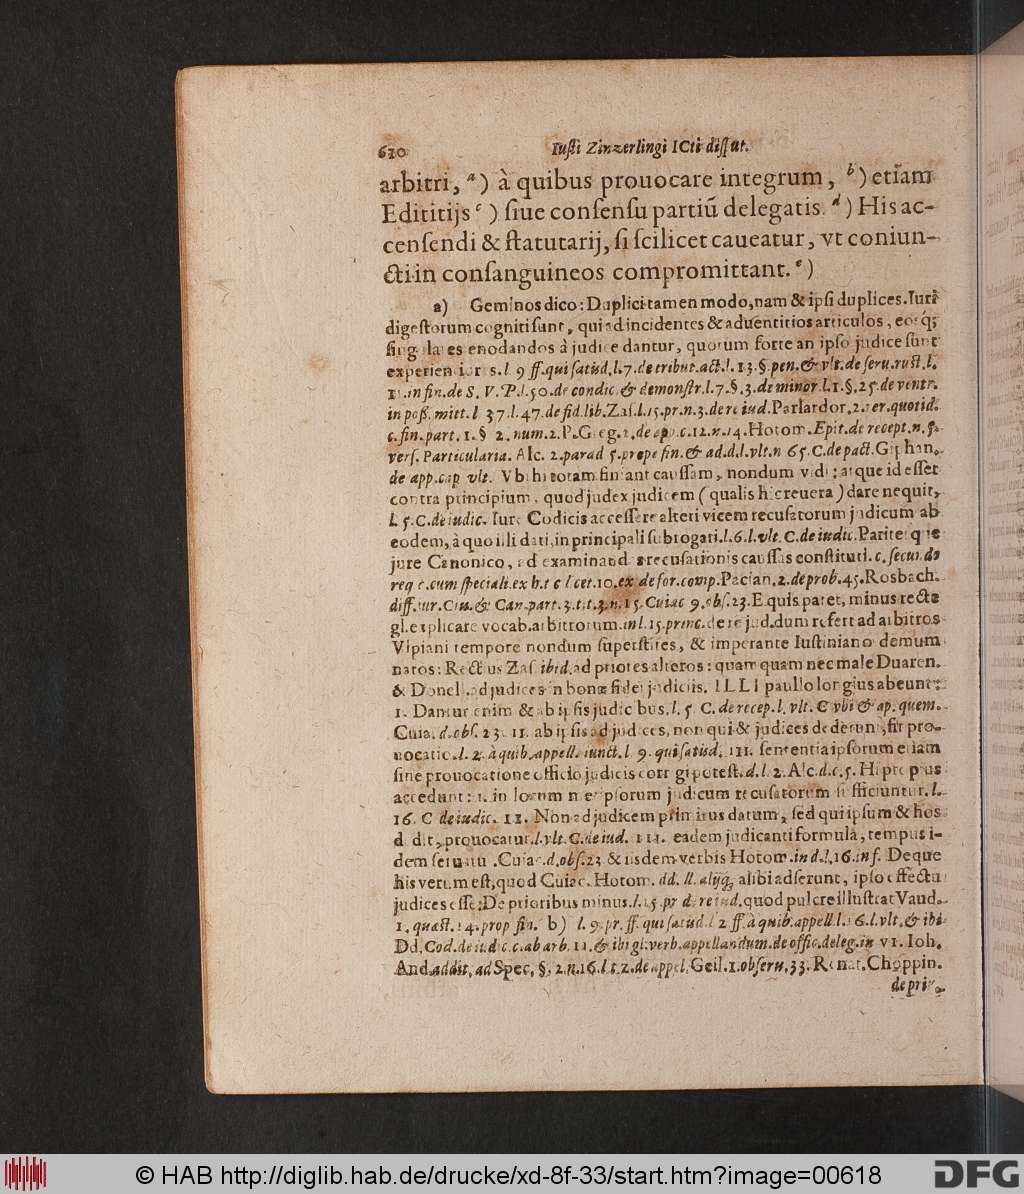 620 Iusti Zinzerlingi ICti disput.
arbitri, a) à quibus prouocare integrum, b) etiam
Edititijs c) siue consensu partiũ delegatis. d) His ac-
censendi & statutarij, si scilicet caueatur, vt coniun-
cti in consanguineos compromittant. e)
a) Geminos dico: Duplici tamen modo, nam & ipsi duplices. Iuri
digestorum cogniti sunt, qui ad incidentes & aduentitios articulos, eosq;
singulares enodandos à judice dantur, quorum forte an ipso judice sunt
experientiores. l. 9 ff. qui satisd. l. 7. de tribut. act. l. 13. §. pen. & vlt. de seru. rust. l.
in fin. de S. V. P. l. 50. de condic. & demonstr. l. 7. §. 3. de minor. l. 1. §. 25. de ventr.
in poss. mitt. l. 37. l. 47. de fid. lib. Zas. l. 15. pr. n. 3. de re iud. Parlardor. 2. rer. quotid.
c. fin. part. 1. § 2. num. 2. P. Greg. 2. de app. c. 12. n. 14. Hotom. Epit. de recept. n. 5.
vers. Particularia. Alc. 2. parad 5. prope fin. & ad. d. l. vlt. n 65. C. de pact. Giphan.
de app. cap vlt. Vbi hi totam finiant caussam, nondum vidi: atque id esset
contra principium, quod judex judicem (qualis hic reuera) dare nequit,
l. 5. C. de iudic. Iure Codicis accessere alteri vicem recusatorum judicum ab
eodem, à quo illi dati, in principali subrogati. l. 6. l. vlt. C. de iudic. Pariterque
jure Canonico, ad examinandas recusationis caussas constituti. c. secundo
req c. cum speciali. ex h. t c l cet. 10. ex de for. comp. Pacian. 2. de prob. 45. Rosbach.
diff. iur. Ciu. & Can. part. 3. tit. 3. n. 15. Cuiac 9. obs. 23. E quis patet, minus recte
gl. explicare vocab. arbitrorum. in l. 15. princ. de re jud. dum refert ad arbitros
Vlpiani tempore nondum superstites, & imperante Iustiniano demum
natos: Rectius Zas. ibid. ad priores alteros: quamquam nec male Duaren.
& Donell. ad judices in bonæ fidei judiciis. ILLI paullo longius abeunt:
1. Dantur enim & ab ipsis judicibus. l. 5. C. de recep. l. vlt. C vbi & ap. quem.
Cuia. d. obs. 23. 11. ab ipsis ad judices, non qui & judices dederunt, fit pro-
uocatio. l. 2. à quib. appell. iunct. l. 9. qui satisd. 111. sententia ipsorum etiam
sine prouocatione officio judicis corrigi potest. d. l. 2. Alc. d. c. 5. HI propius
accedunt: 1. in locum n. eripsorum judicum recusatorum sufficiuntur. l.
16. C de iudic. 11. Non ad judicem primitus datum, sed qui ipsum & hos
dedit, prouocatur. l. vlt. C. de iud. 111. eadem judicanti formula, tempus i-
dem seruatu. Cuiac. d. obs. 23 & iisdem verbis Hotom. in d. l. 16. inf. Deque
his verum est, quod Cuiac. Hotom. dd. ll. alijq; alibi adserunt, ipso effectu
judices esse: De prioribus minus. l. 15. pr de re iud. quod pulcre illustrat Vaud.
1. quæst. 14. prop fin. b) l. 9. pr. ff. qui satisd. l 2 ff. à quib. appell. l. 16. l. vlt, & ibi
Dd. Cod. de iudic. c. ab arb. 11. & ibi gl. verb. appellandum. de offic. deleg. in VI. Ioh.
And. addit. ad Spec. §. 2. n. 16. l. t. 2. de appel. Geil. 1. obseru. 33. Renat. Choppin.
de pri-
© HAB http://diglib.hab.de/drucke/xd-8f-33/start.htm?image=00618
DFG